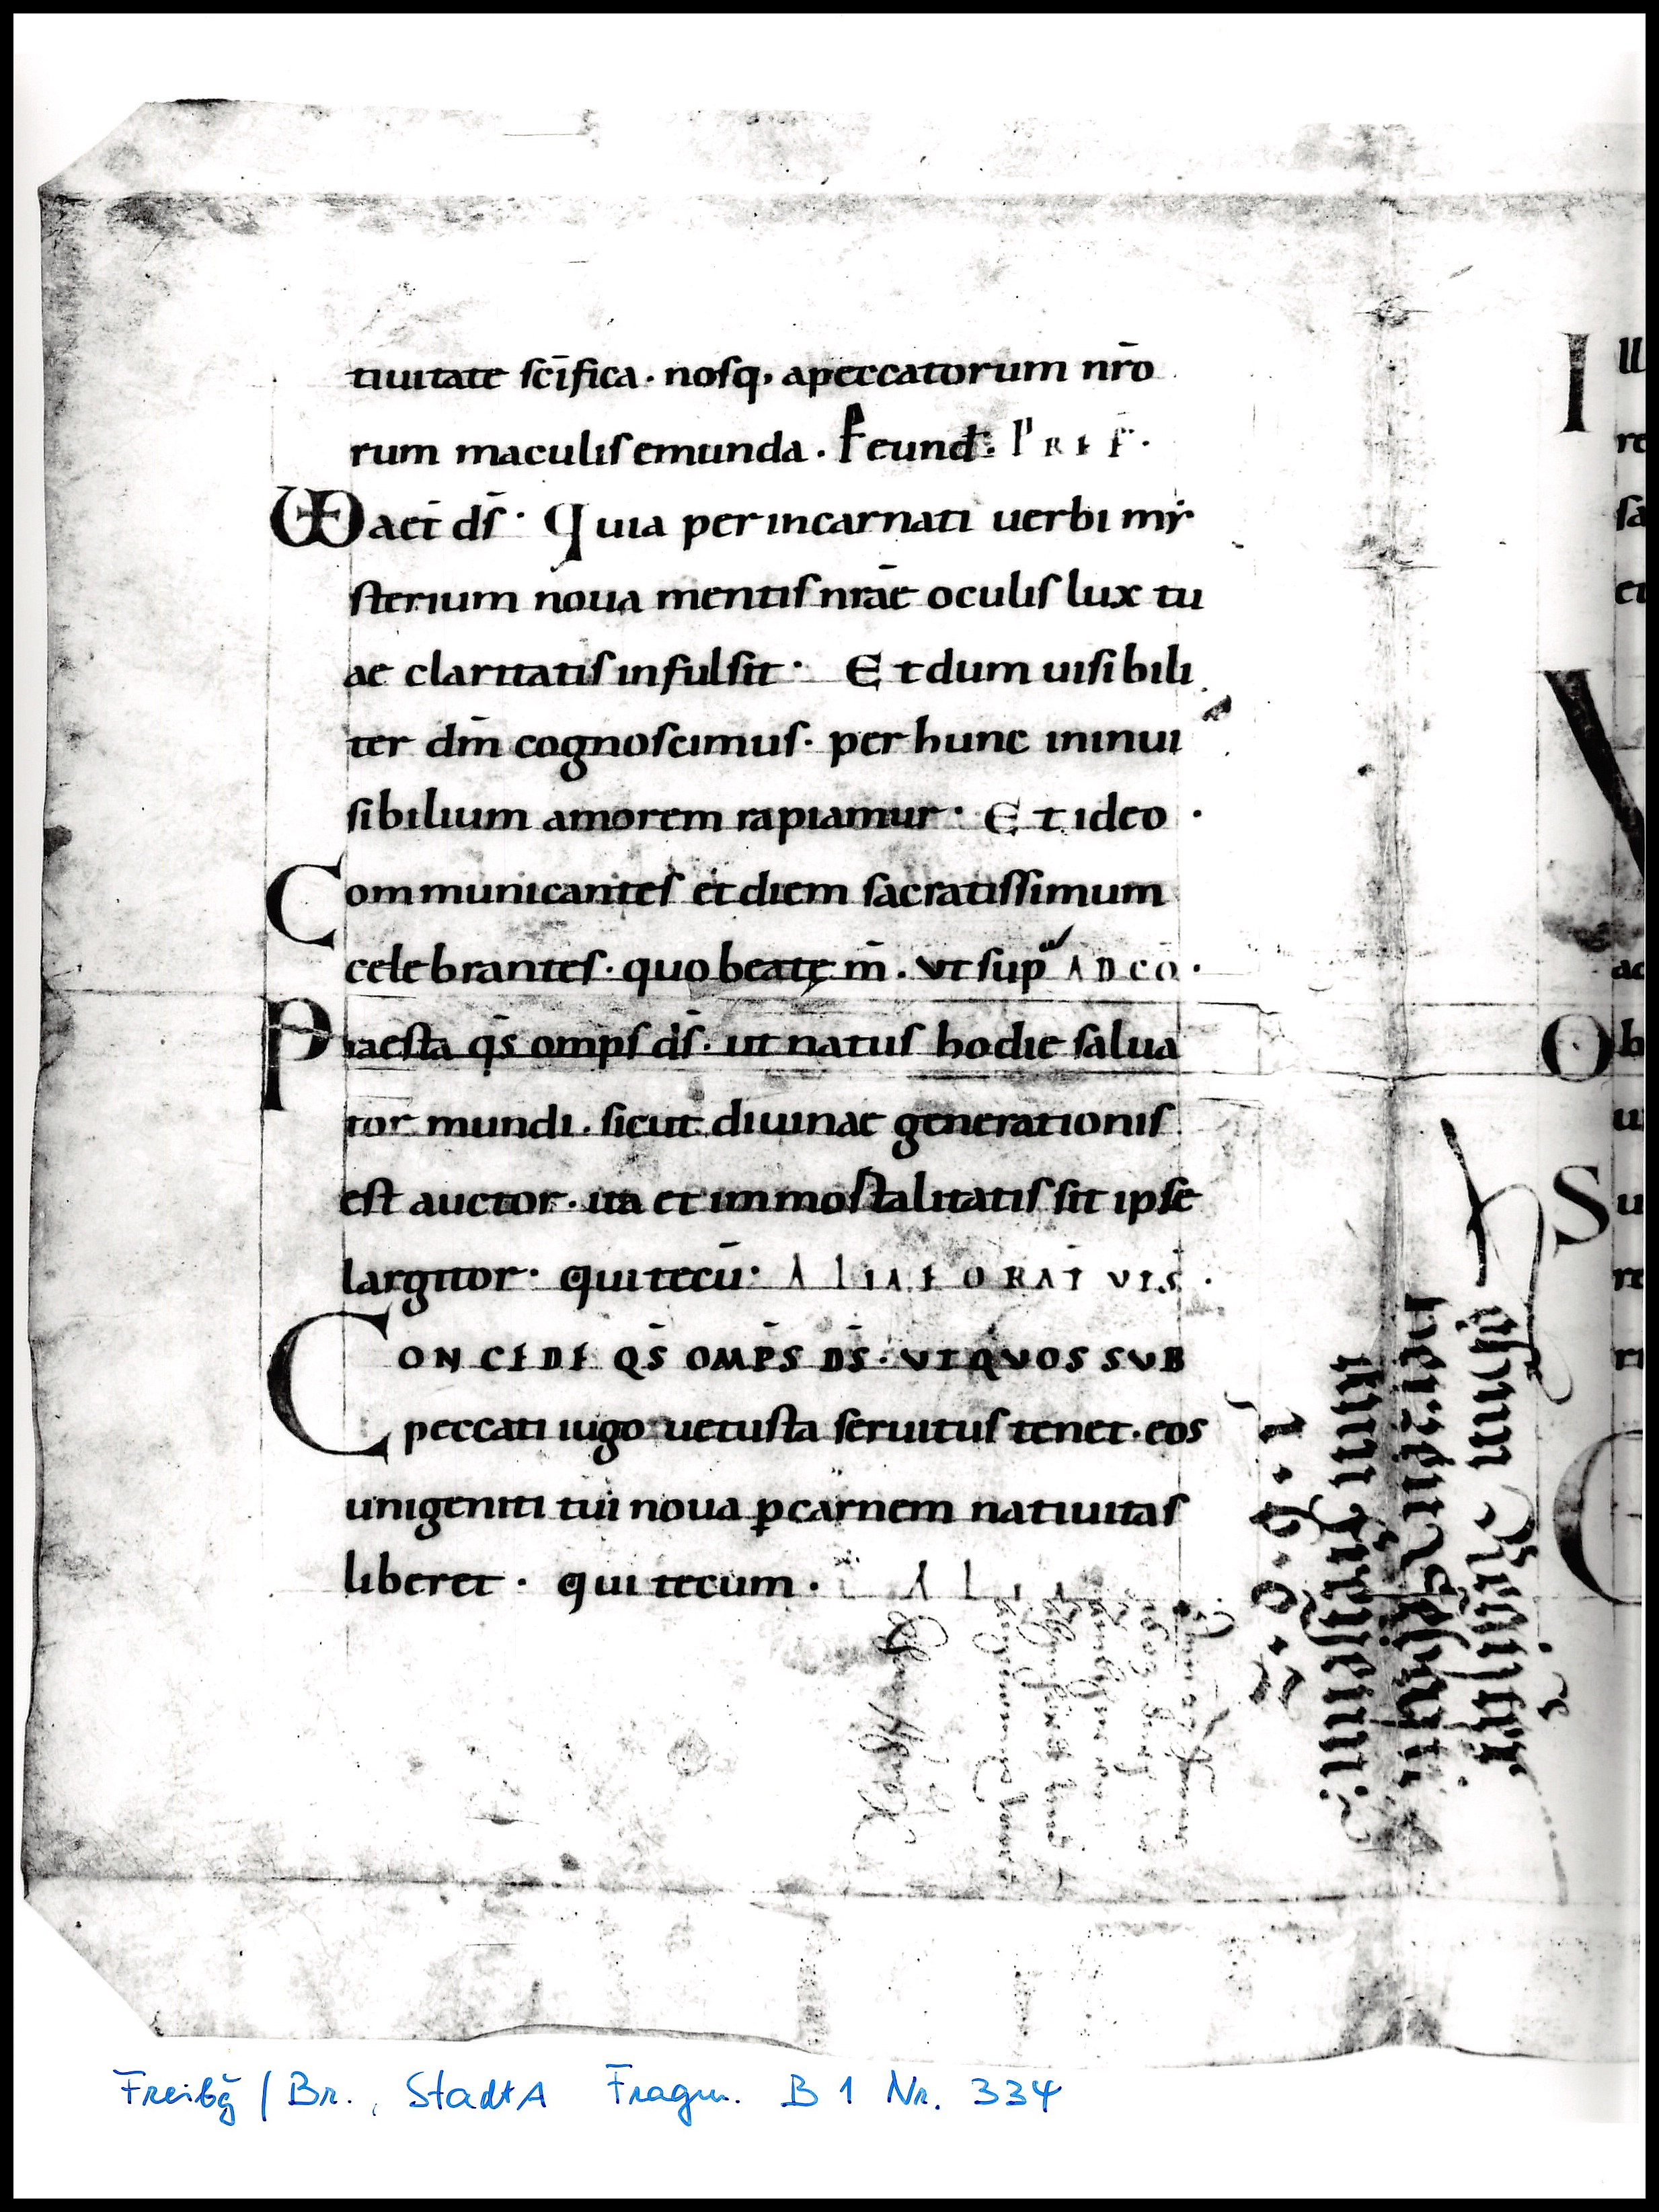 tiuitate scīfica· nosq, apeccatorum nr̄o
rum maculis emunda. P eund: PREF·
VD aet̄ ds̄· Quia per incarnati uerbi my
sterium noua mentis nr̄ae oculis lux tu
ae claritatis infulsit· Et dum uisibili
ter dm̄ cognoscimus· per hunc ininui
sibilium amorem rapiamur· Et ideo·
Communicantes et diem sacratissimum
celebrantes· quo beatę m̄. ut sup AD CŌ·
Praesta qs̄ omp̄s ds̄· ut natus hodie salua
tor mundi· sicut diuinae generationis
est auctor· ita et immortalitatis sit ipse
largitor· qui tecū· ALIAE ORAT̄ VIS̄·
CONCEDE QS̄ OMP̄S DS̄· VT QVOS SVB
peccati iugo uetusta seruitus tenet· eos
unigeniti tui noua ꝑ carnem natiuitas
liberet· qui tecum· ALIA
I ll
re
sa
et
V
ac
Ob
u
Su
re
ri
Freibg / Br., StadtA Fragm. B 1 Nr. 334